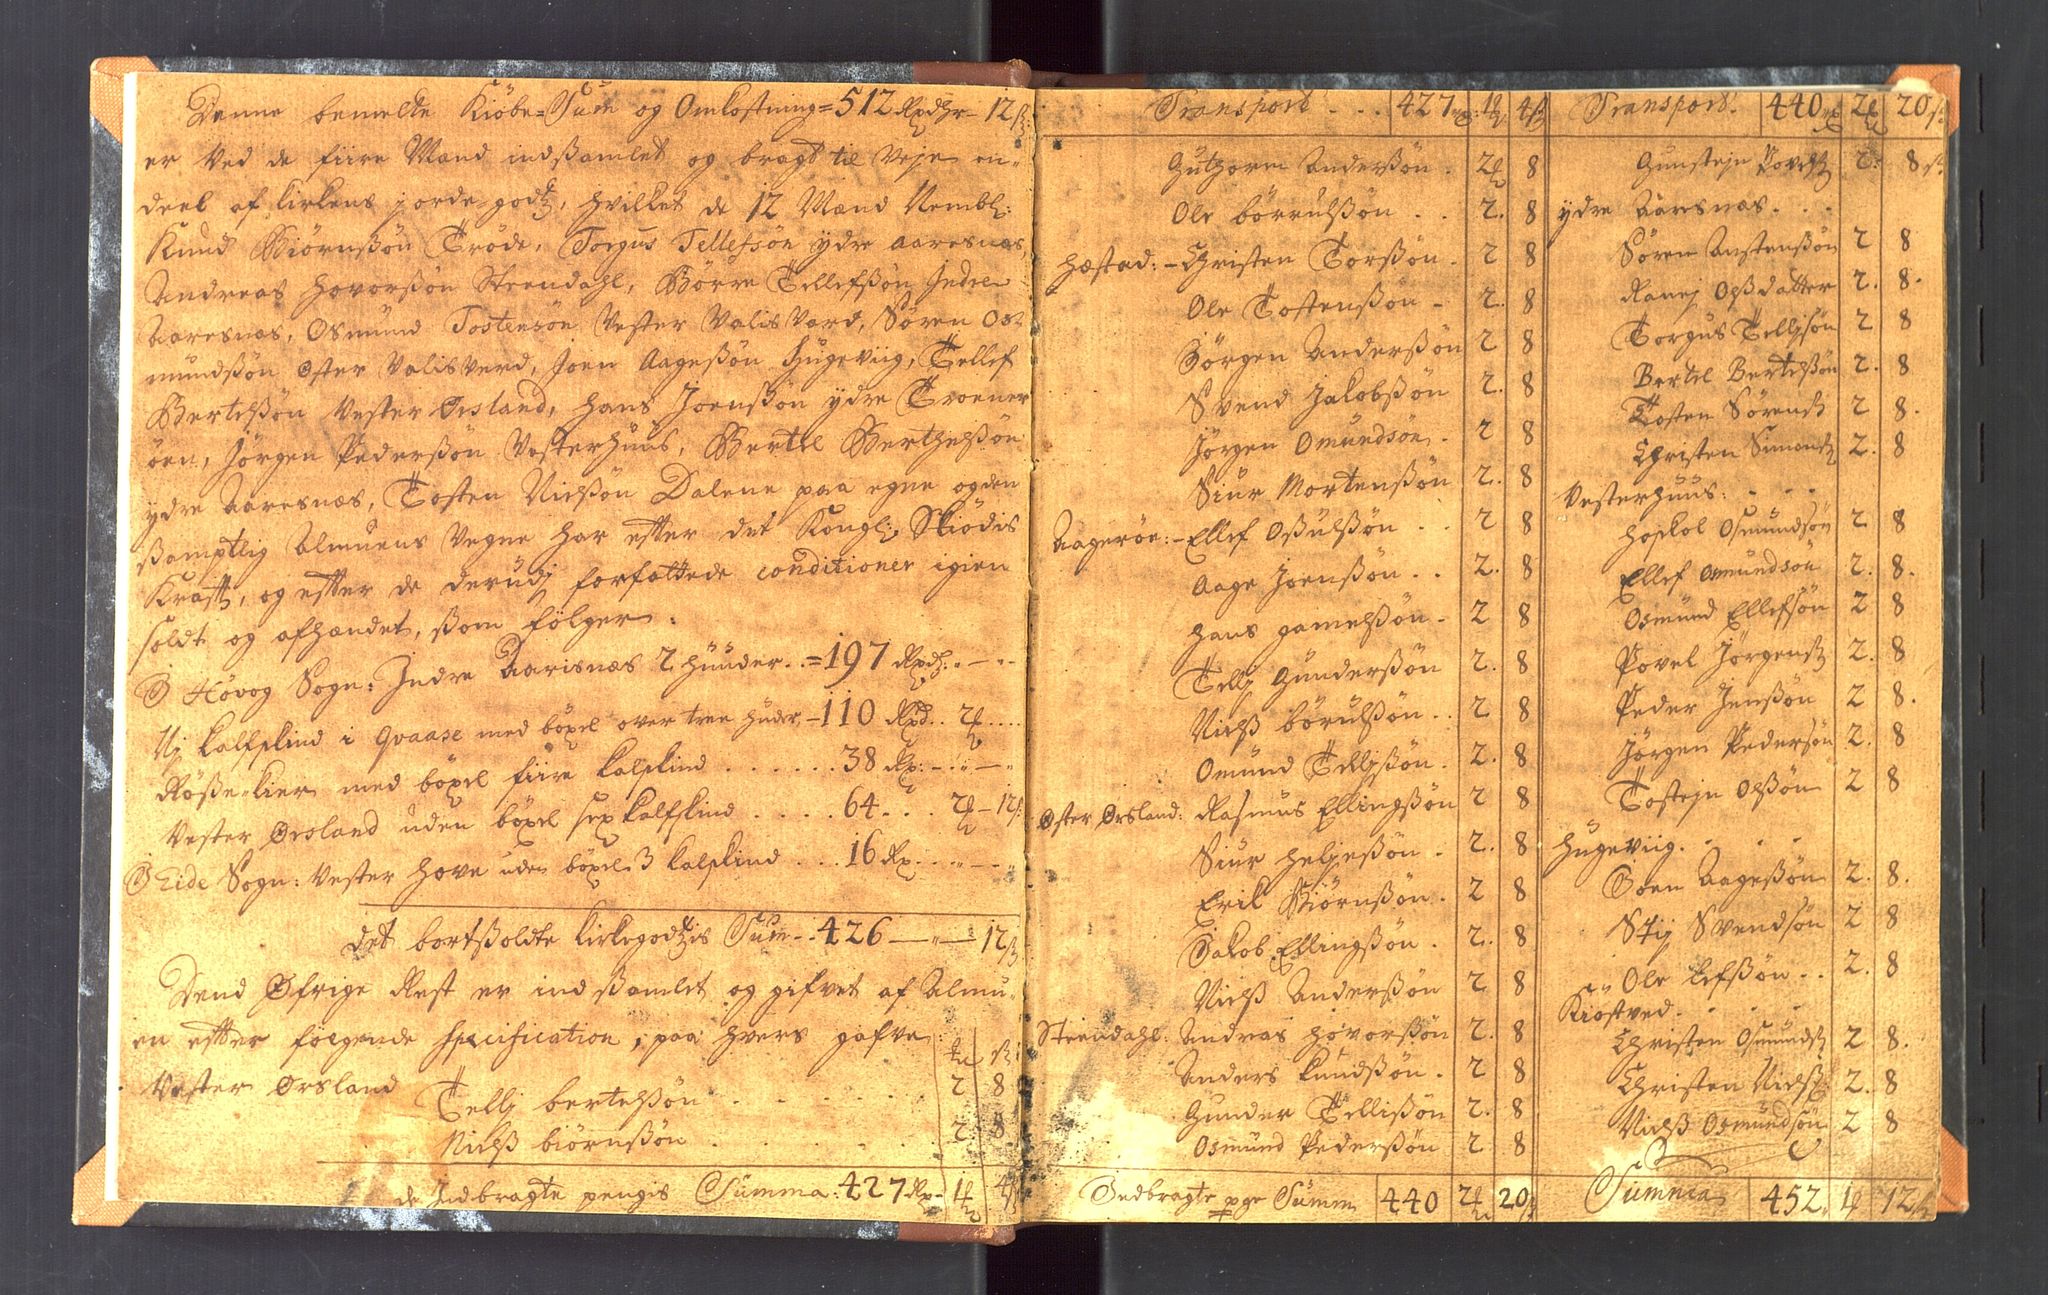 Denne bemelte Kiöbe-Sum og Omkostning = 512 Rpdhr - 12 ß:
er Ved de fiire Mænd indßamlet og bragt til Veje en-
deel af kirkens jorde-godtz, hvilket de 12 Mænd Nembl:
Knud Biörnßön Tröde, Torgus Tellefsön ydre Aaresnæs,
Andreas Hovorßön Steendahl, Börre Tellefßön Indre
Aaresnæs, Osmund Tostensön Vester Valis Værd, Sören Os-
mundßön Öster Valisverd, Joen Aageßön Hugeviig, Tellef
Bertelßön Vester Ørsland, Hans Joenßön ydre Troener
öen, Jörgen Pederßön Vesterhuus, Bertel Berthelßön
ydre Aaresnæs, Tosten Nielßön Dalene paa egne og den
ßamptlig Almuens Vegne har efter det Kongl: Skiödis
Krafft, og efter de derudj forfattede conditioner igien
soldt og afhændet, ßom fölger:
I Hövog Sogn: Indre Aarisnæs 2 Huuder . . = 197 Rpd: " — "
Nj kalfskind i Qvaase med böxel over tree huder - 110 Rpd . . 2 . . . .
Röße-kier med böxel fiire kalfskind . . . . . . 38 Rp: - " — "
Vester Ørsland uden böxel sex kalfskind . . . . . 64 . . . 2 — 12 ß:
I Eide Sogn: Vester Hove uden böxel 3 kalfskind . . . 16 Rp: . . " — "
det bortßoldte kirkegodtzis Sum - . 426 — " — 12 ß
Dend Øfrige Rest er indßamlet og gifvet af Almu-
en efter følgende specification, paa hvers gafve ß:
Vester Ørsland Tellj bertelßön . . . . . 2 8
Nielß biörnßön . . . . . 2. 8
de Indbragte pengis Summa: 427 Rp - 1 4 ß
Transport . . . 427 1 4 ß
Guthorm Anderßön . 2 8
Ole börrulßön . . 2. 8
Hæstad: - Christen Torßön . 2 8
Ole Tostenßön - 2. 8
Börgen Anderßön 2 8
Svend Jakobßön 2. 8
Jörgen Omundsön . 2 8
Siur Mortenßön 2. 8
Aagerøe: - Ellef Oßulßön . . 2 8
Aage Joenßön . . 2. 8
Hans gamelßön - 2 8
Tellj Gunderßön 2. 8
Nielß börulßön . . 2 8
Omund Telljßön . 2. 8
Øster Ørsland: Rasmus Ellingßön 2 8
Siur Heljeßön . 2. 8
Erik Biörnßön . 2 8
Jakob Ellingßön . 2. 8
Nielß Anderßön 2 8
Steendahl: Andreas Hovorßön 2. 8
Anders knudßön . 2 8
Gunder Tellißön 2. 8
Osmund Pederßön 2 8
Indbragte pge Summ 440 2 20 ß
Transport. 440 2 20 ß
Gunstejn Povelß 2. 8 ß
ydre Aaresnæs . . .
Sören Anstenßön 2 8
Ranej Olßdatter 2. 8.
Torgus Telljsön 2 8
Bertel Bertelßön 2. 8
Tosten Sörenß 2 8.
Christen Simonß 2. 8
Vesterhuus: . . .
Hoskol Osmundsön 2 8
Ellef Osmundsön 2. 8.
Osmund Ellefsön 2 8
Povel Jörgenß 2. 8
Peder Jenßön 2 8.
Jörgen Pedersön 2. 8
Tostejn Olßön 2 8
Hugeviig . . . .
Joen Aageßön 2. 8.
Stij Svendsön 2 8
Ole Lefßön . . 2. 8
Kiöstved . . . .
Christen Osmundß 2 8.
Christen Nielß: 2. 8
Nielß Osmundsön 2 8
Summa 452 1 12 ß